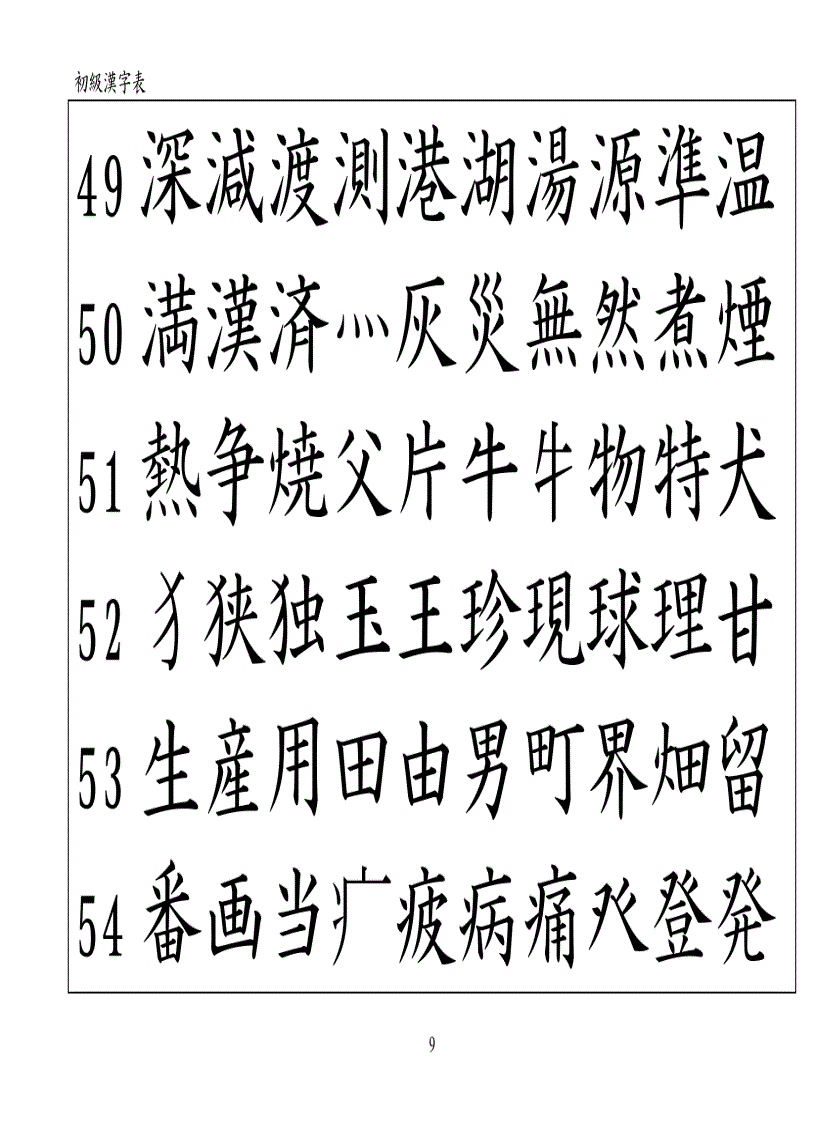 初級漢字表
49 深減渡測港湖湯源準温
50 満漢済灬灰災無然煮煙
51 熱争焼父片牛牜物特犬
52 犭狭独玉王珍現球理甘
53 生産用田由男町界畑留
54 番画当疒疲病痛癶登発
9